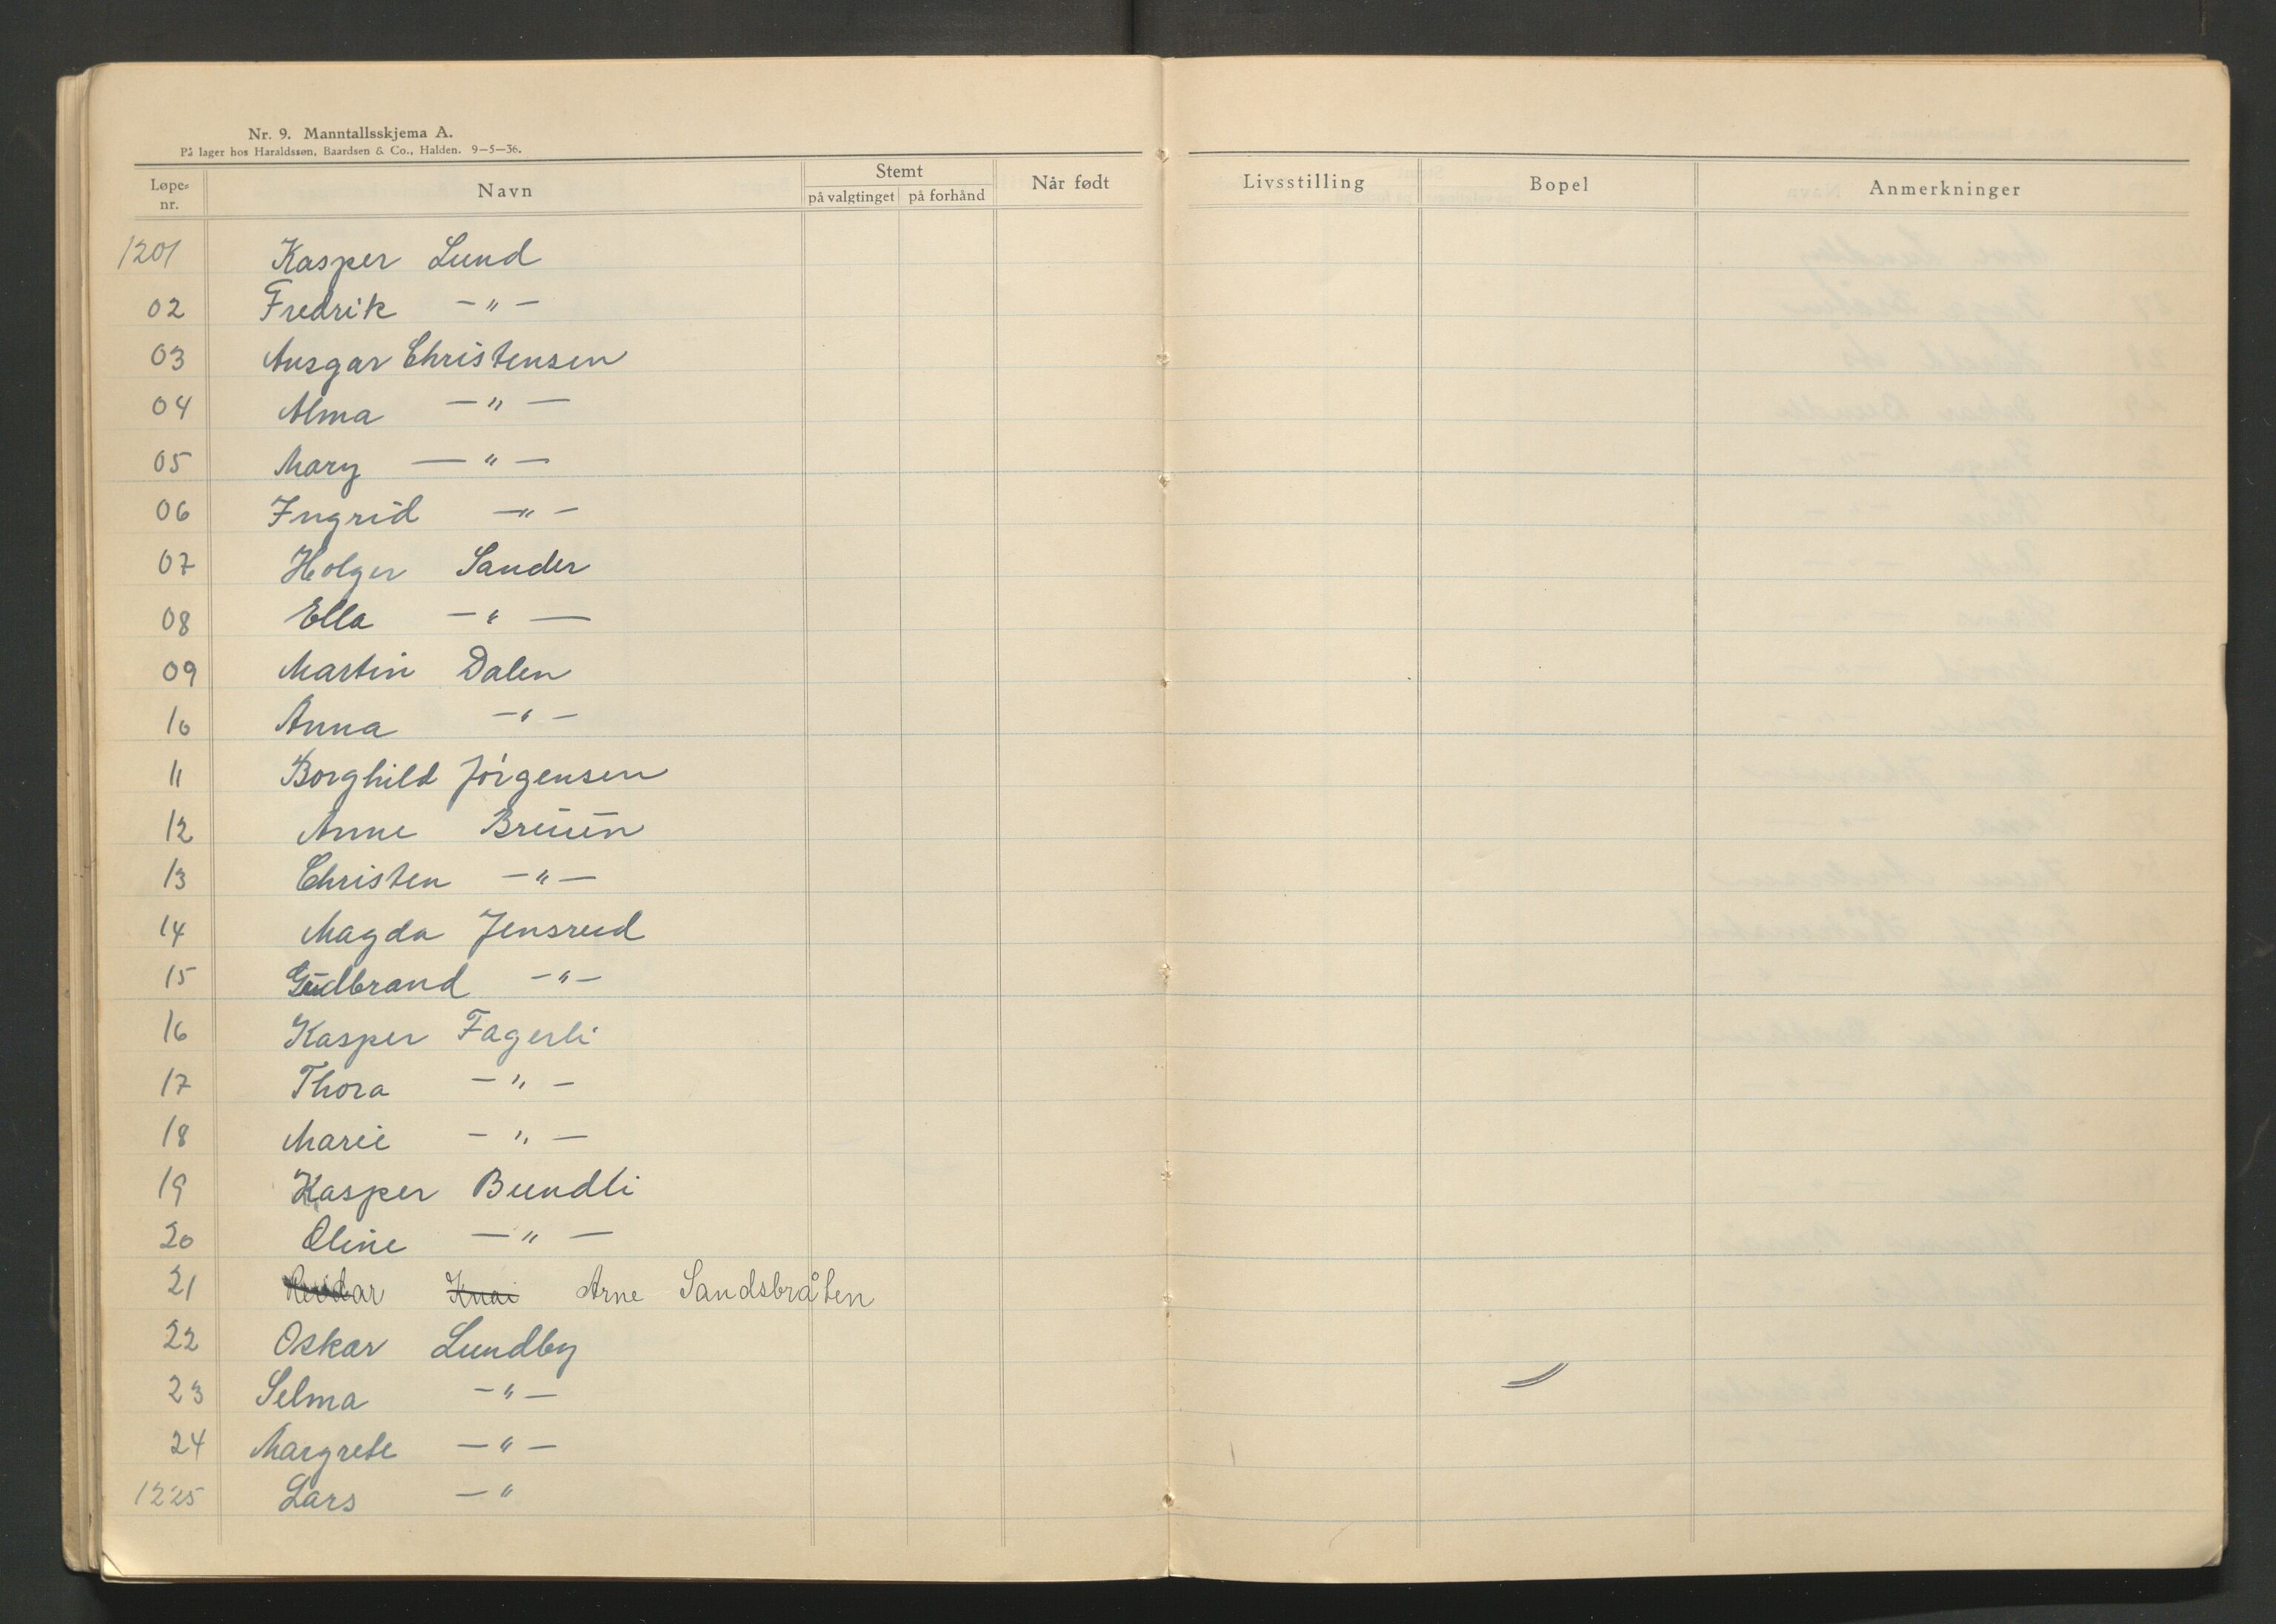 Nr. 9. Manntallsskjema A.
På lager hos Haraldssøn, Baardsen & Co., Halden. 9-5-36.
Løpe-nr. Navn Stemt på valgtinget på forhånd Når født Livsstilling Bopel Anmerkninger
1201 Kasper Lund
02 Fredrik -"-
03 Ansgar Christensen
04 Alma -"-
05 Mary -"-
06 Ingrid -"-
07 Holger Sander
08 Ella -"-
09 Martin Dalen
10 Anna -"-
11 Borghild Jörgensen
12 Anne Bruun
13 Christen -"-
14 Magda Jensrud
15 Gudbrand -"-
16 Kasper Fagerli
17 Thora -"-
18 Marie -"-
19 Kasper Bundli
20 Oline -"-
21 Reidar Knai Arne Sandsbråten
22 Oskar Lundby
23 Selma -"-
24 Margrete -"-
1225 Lars -"